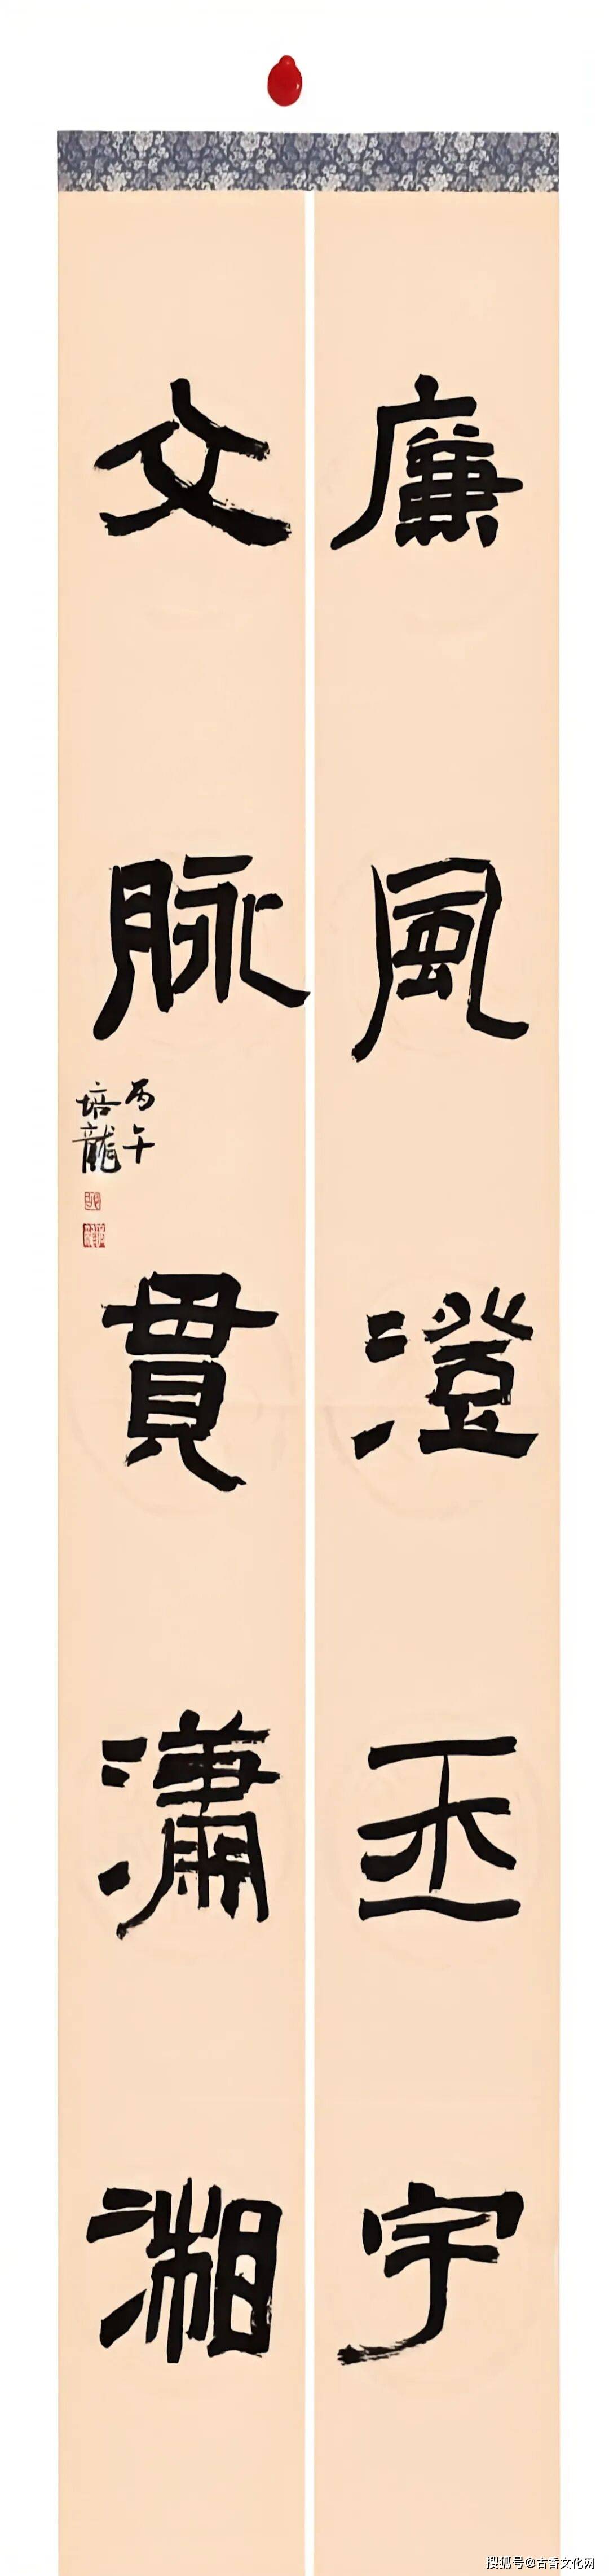 廉風澄玉宇
文脉貫瀟湘
丙午
培龍
搜狐号@古香文化网